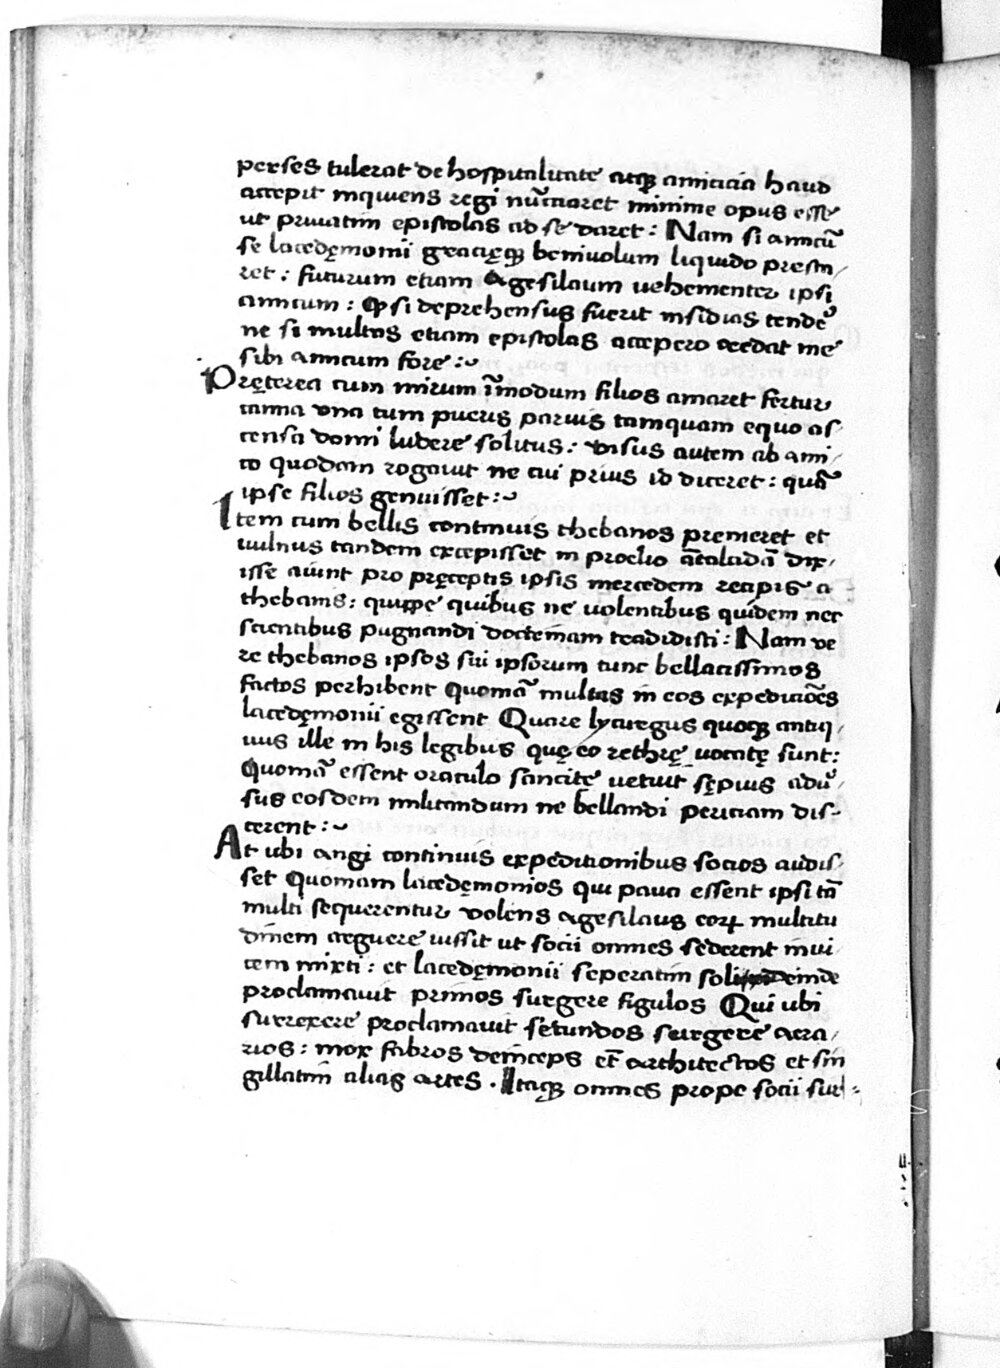 perses tulerat de hospitalitate atqꝫ amicicia haud
accepit inquiens regi nũciaret minime opus esse
ut priuatim epistolas ad se daret : Nam si amicũ
se lacedęmonii greciꝙ beniuolum liquido presta/
ret : futurum etiam Agesilaum uehementer ipsi
amicum : Qꝫ si deprehensus fuerit insidias tende
ne si multas etiam epistolas accepero credat me
sibi amicum fore :~
Pręterea cum mirum ĩmodum filios amaret fertur
canna una cum pueris paruis tamquam equo as/
censa domi ludere solitus : uisus autem ab ami/
co quodam rogauit ne cui prius id diceret : quã
ipse filios genuisset :~
Item cum bellis continuis thebanos premeret et
uulnus tandem excepisset in proelio ãtalcidã dix/
isse aiunt pro pręceptis ipsis mercedem recipis a
thebanis : quippe quibus ne uolentibus quidem nec
scientibus pugnandi doctrinam tradidisti : Nam ve
re thebanos ipsos sui ipsorum tunc bellacissimos
factos perhibent Quoniã multas in eos expediciões
lacedęmonii egissent Quare lycurgus quoqꝫ antiq/
uus ille in his legibus quę eo rethrę uocatę sunt :
Quoniã essent oraculo sancite uetuit sępius aduẽ/
sus eosdem militandum ne bellandi periciam dis-
cerent :~
At ubi angi continuis expeditionibus socios audis/
set Quoniam lacedęmonios qui pauci essent ipsi tã
multi sequerentur volens agesilaus eoꝝ multitu
dinem arguere iussit ut socii omnes sederent inui/
cem mixti : et lacedęmonii seperatim soli deinde
proclamauit primos surgere figulos Qui ubi
surrexere proclamauit secundos surgere aera/
rios : mox fabros deinceps et architectos et sin
gillatim alias artes . Itaqꝫ omnes prope socii sur-